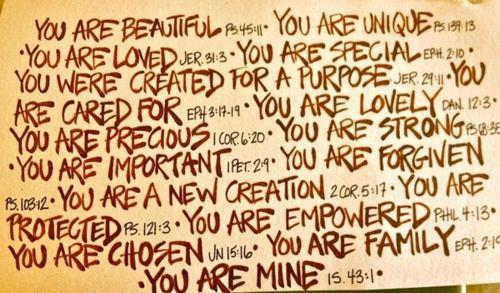 YOU ARE BEAUTIFUL PS.45:11 • YOU ARE UNIQUE PS.139:13
• YOU ARE LOVED JER. 31:3 • YOU ARE SPECIAL EPH. 2:10 •
YOU WERE CREATED FOR A PURPOSE JER. 29:11 • YOU
ARE CARED FOR EPH 3:17-19 • YOU ARE LOVELY DAN. 12:3 •
YOU ARE PRECIOUS 1 COR. 6:20 • YOU ARE STRONG PS 18:35
• YOU ARE IMPORTANT 1 PET. 2:9 • YOU ARE FORGIVEN
PS. 103:12 • YOU ARE A NEW CREATION 2 COR. 5:17 • YOU ARE
PROTECTED PS. 121:3 • YOU ARE EMPOWERED PHIL 4:13 •
YOU ARE CHOSEN JN 15:16 • YOU ARE FAMILY EPH. 2:19
• YOU ARE MINE IS. 43:1 •